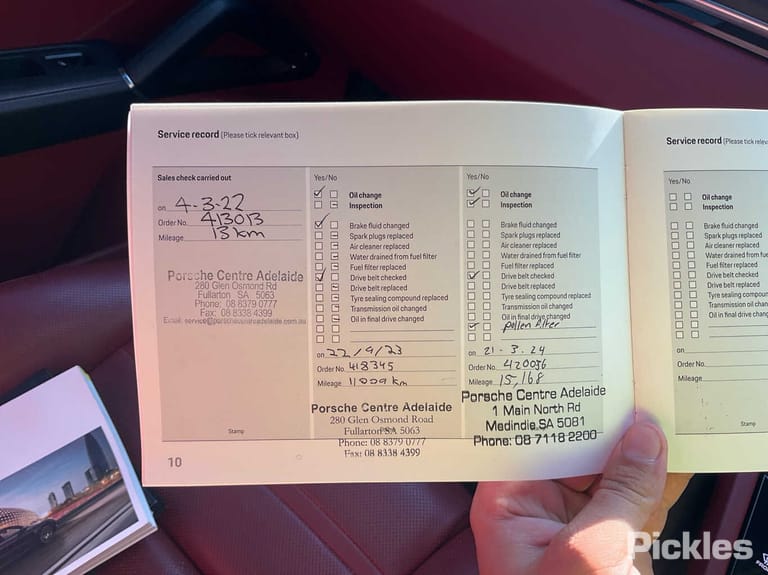 Service record (Please tick relevant box)
Sales check carried out
on 4-3-22
Order No. 413013
Mileage 13 km
Porsche Centre Adelaide
280 Glen Osmond Rd
Fullarton SA 5063
Phone: 08 8379 0777
Fax: 08 8338 4399
Email: service@porschecentreadelaide.com.au
Stamp
10
Yes/No
Oil change
Inspection
Brake fluid changed
Spark plugs replaced
Air cleaner replaced
Water drained from fuel filter
Fuel filter replaced
Drive belt checked
Drive belt replaced
Tyre sealing compound replaced
Transmission oil changed
Oil in final drive changed
on 22/9/23
Order No. 418345
Mileage 11009 km
Porsche Centre Adelaide
280 Glen Osmond Road
Fullarton SA 5063
Phone: 08 8379 0777
Fax: 08 8338 4399
Yes/No
Oil change
Inspection
Brake fluid changed
Spark plugs replaced
Air cleaner replaced
Water drained from fuel filter
Fuel filter replaced
Drive belt checked
Drive belt replaced
Tyre sealing compound replaced
Transmission oil changed
Oil in final drive changed
pollen filter
on 21-3-24
Order No. 420036
Mileage 15,168
Porsche Centre Adelaide
1 Main North Rd
Medindie SA 5081
Phone: 08 7118 2200
Service record (Please tick relev
Yes/No
Oil change
Inspection
Brake fluid changed
Spark plugs replaced
Air cleaner replaced
Water drained from fuel
Fuel filter replaced
Drive belt checked
Drive belt replaced
Tyre sealing compound
Transmission oil chang
Oil in final drive chang
on
Order No.
Mileage
Stamp
Pickles